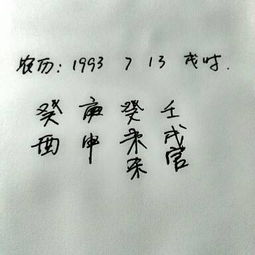 农历: 1993 7 13 戌时.
癸 庚 癸 壬
酉 申 未 戌